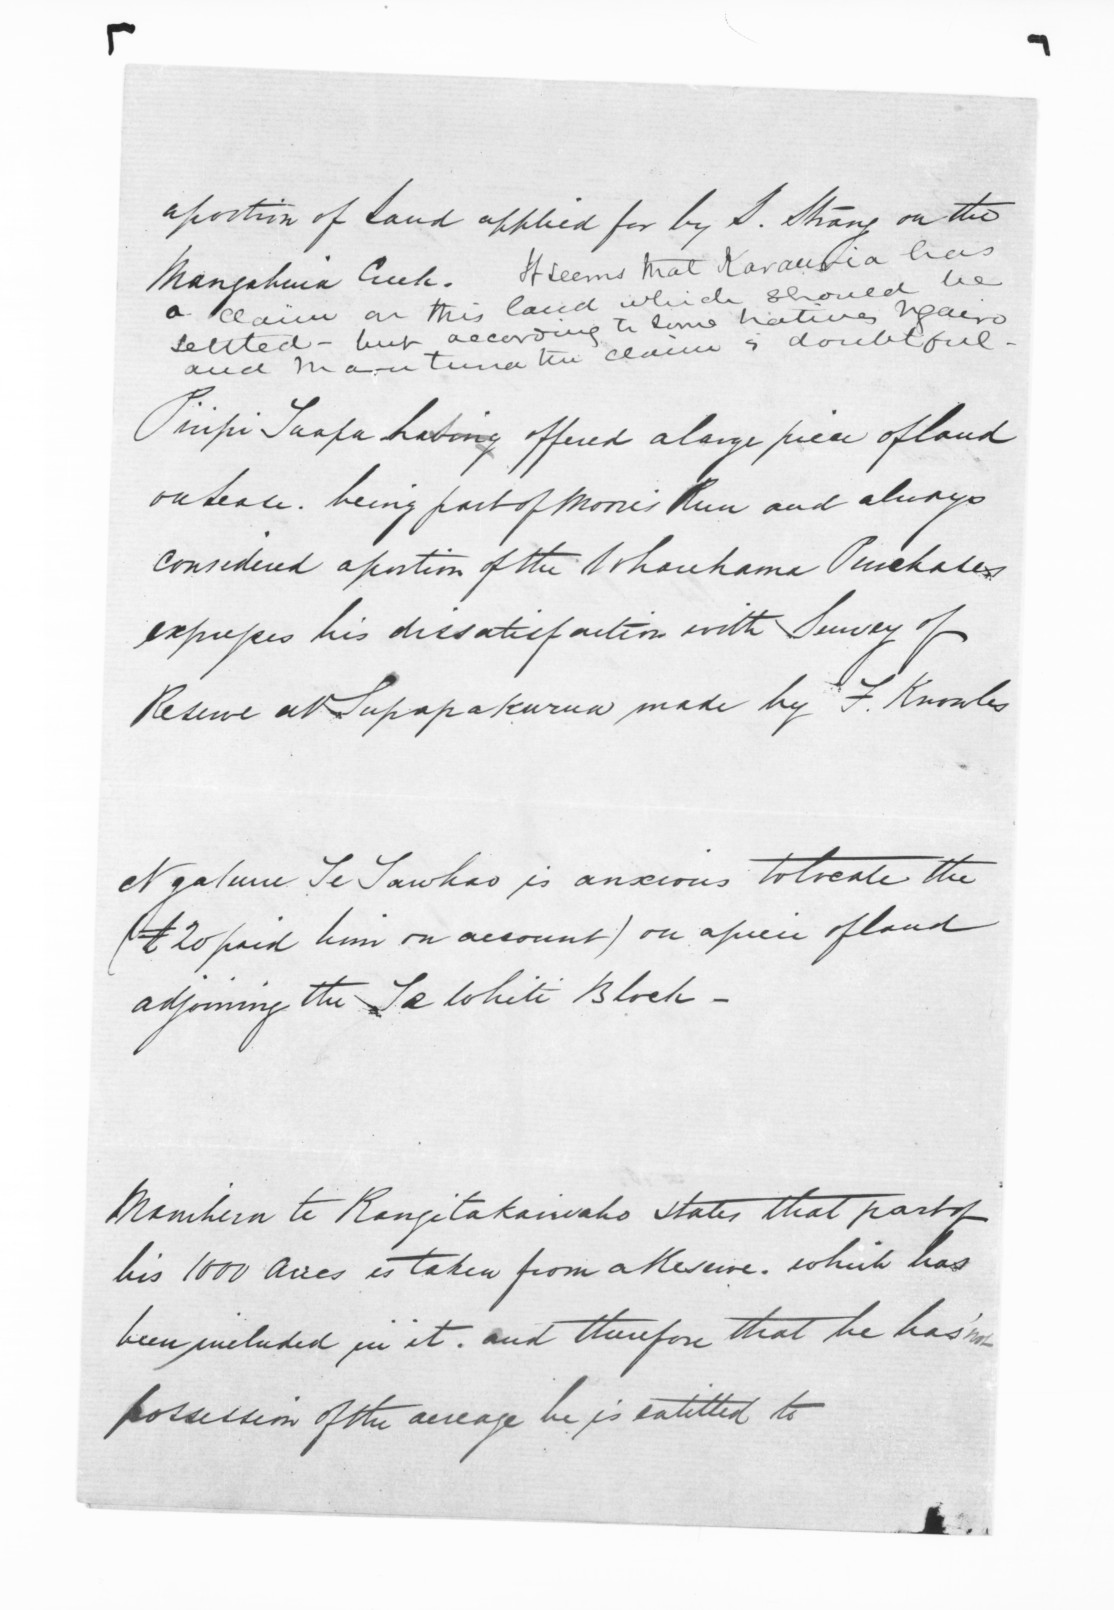 a portion of Land applied for by S. Strang on the
Mangahuia Creek. It seems that Karauria has
a claim on this land which should be
settled - but according to some natives Ngairo
and Ma-utuna the claim is doubtful -
Piripi Taapa having offered a large piece of land
on Lease. being part of Morris Run and always
considered a portion of the Wharehama Purchases
expresses his dissatisfaction with Survey of
Reserve at Tupapakurua made by F. Knowles
Ngatuere Te Tawhao is anxious to locate the
(£20 paid him on account) on a piece of land
adjoining the Te Whiti Block -
Manihera te Rangitakaiwaho states that part of
his 1000 Acres is taken from a Reserve. which has
been included in it. and therefore that he has not
possession of the acreage he is entitled to